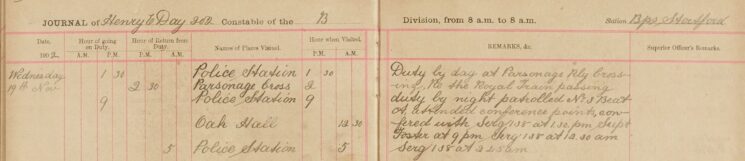 JOURNAL of Henry E Day 202 Constable of the B Division, from 8 a.m. to 8 a.m. Station Bps Stortford
Date. Hour of going on Duty. Hour of Return from Duty. Names of Places Visited. Hour when Visited. REMARKS, &c. Superior Officer's Remarks.
1902. A.M. P.M. P.M. A.M. P.M. A.M.
Wednesday 1 30 Police Station 1 30 Duty by day at Parsonage Rly Cross-
19th Nov 2 30 Parsonage Cross 2 ing, Re the Royal Train passing
9 Police Station 9 duty by night patrolled No 3 Beat
Oak Hall 12 30 attended conference points, con-
fered with Serg 138 at 1.30 pm Supt
Foster at 9 pm Serg 138 at 12.30 am
5 Police Station 5 Serg 138 at 2.25 am